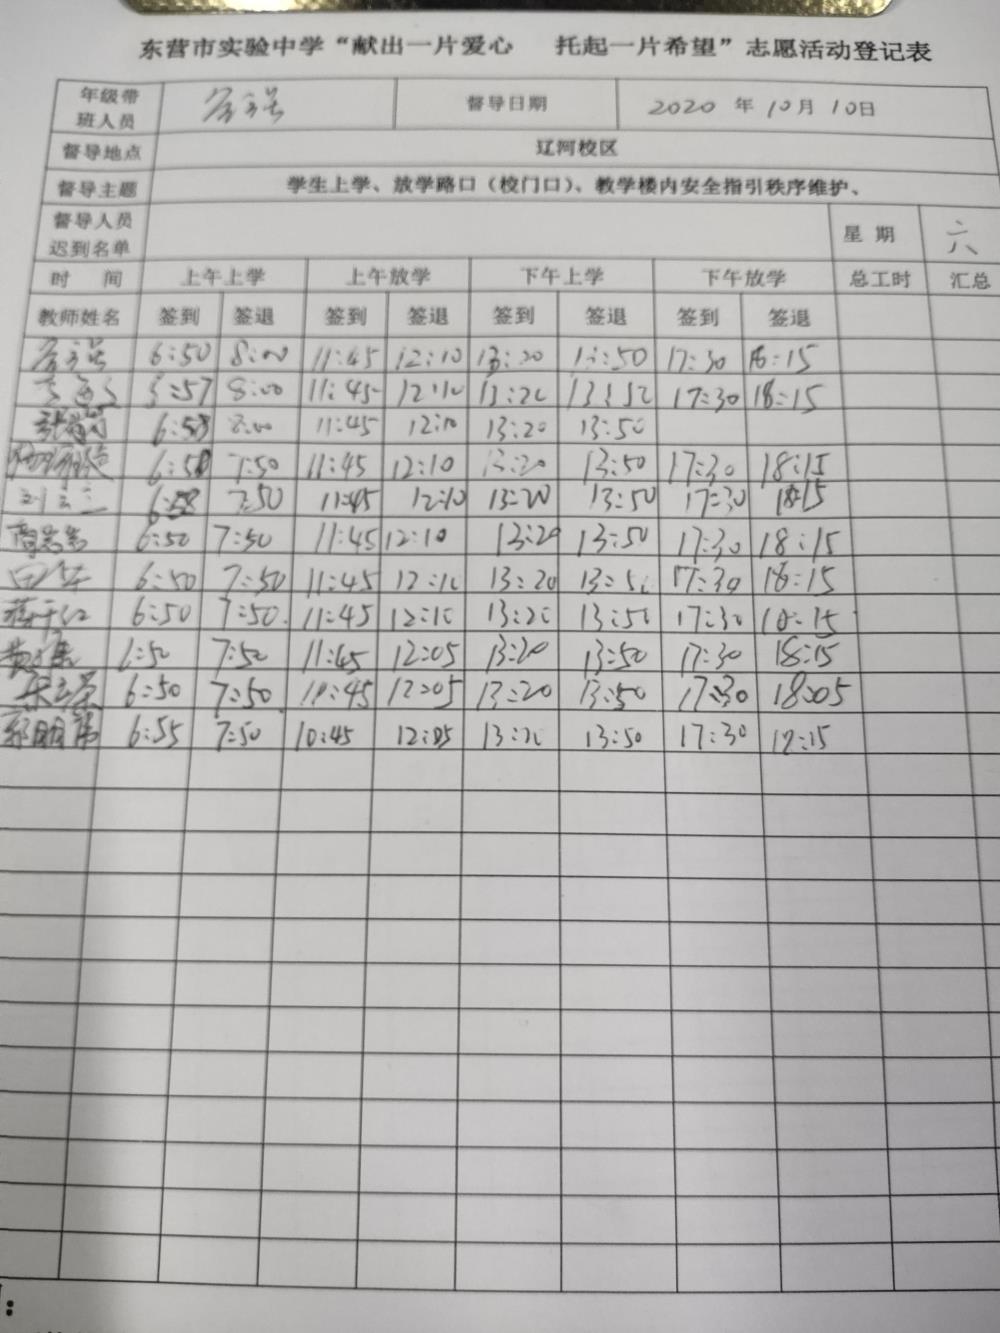 东营市实验中学“献出一片爱心 托起一片希望”志愿活动登记表
年级带班人员 督导日期 2020 年 10月 10日
督导地点 辽河校区
督导主题 学生上学、放学路口（校门口）、教学楼内安全指引秩序维护、
督导人员迟到名单 星 期 六
时 间 上午上学 上午放学 下午上学 下午放学 总工时 汇总
教师姓名 签到 签退 签到 签退 签到 签退 签到 签退
6:50 8:00 11:45 12:10 13:20 13:50 17:30 18:15
8:00 11:45 12:10 13:20 13:50 17:30 18:15
6:58 8:00 11:45 12:10 13:20 13:50
6:58 7:50 11:45 12:10 13:20 13:50 17:30 18:15
6:58 7:50 11:45 12:10 13:20 13:50 17:30 18:15
6:50 7:50 11:45 12:10 13:20 13:50 17:30 18:15
6:50 7:50 11:45 12:10 13:20 13:50 17:30 18:15
6:50 7:50 11:45 12:10 13:20 13:50 17:30 18:15
6:50 7:50 11:45 12:05 13:20 13:50 17:30 18:15
6:50 7:50 12:05 13:20 13:50 17:30 18:05
郭明 6:55 7:50 10:45 12:05 13:20 13:50 17:30